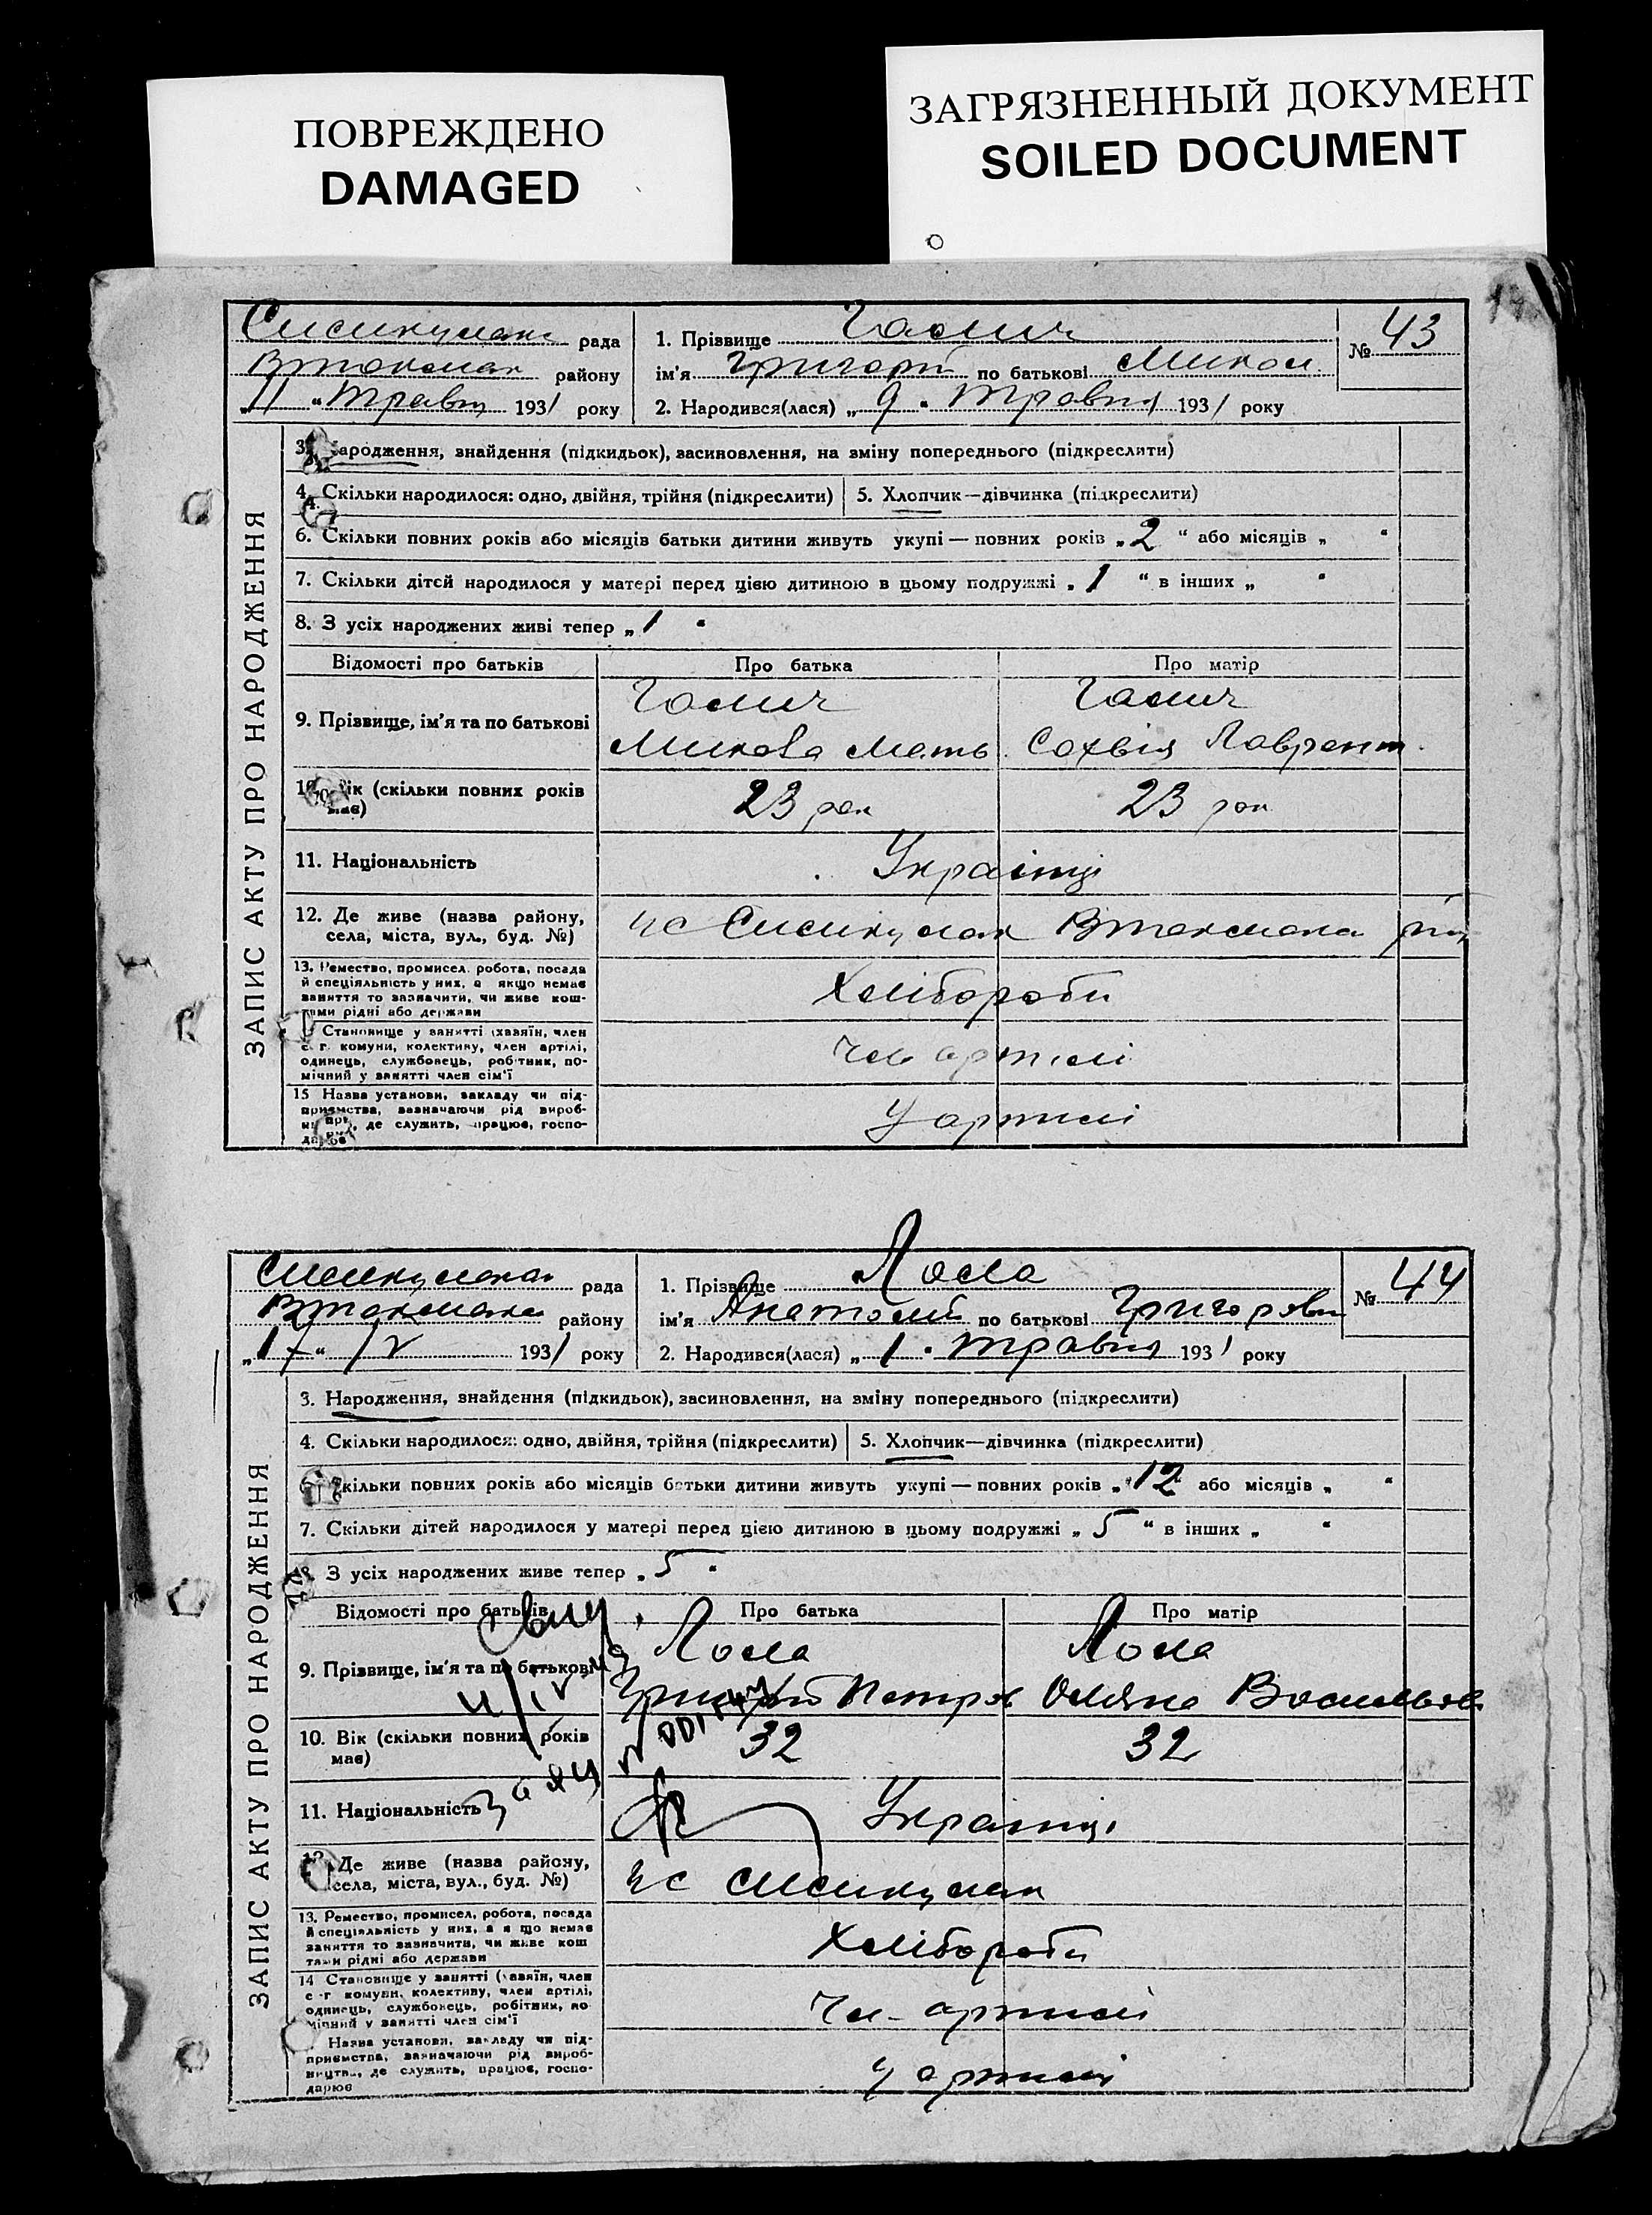 ПОВРЕЖДЕНО
DAMAGED
ЗАГРЯЗНЕННЫЙ ДОКУМЕНТ
SOILED DOCUMENT
рада
району
„11“ Травн 1931 року
1. Прізвище Галич
ім'я Григорій по батькові Микол.
2. Народився(лася) „9“ Травня 1931 року
№ 43
ЗАПИС АКТУ ПРО НАРОДЖЕННЯ
3. Народження, знайдення (підкидьок), засиновлення, на зміну попереднього (підкреслити)
4. Скільки народилося: одно, двійня, трійня (підкреслити)
5. Хлопчик—дівчинка (підкреслити)
6. Скільки повних років або місяців батьки дитини живуть укупі — повних років „2“ або місяців „ “
7. Скільки дітей народилося у матері перед цією дитиною в цьому подружжі „1“ в інших „ “
8. З усіх народжених живі тепер „1“
Відомості про батьків
Про батька
Про матір
9. Прізвище, ім'я та по батькові
Галич
Микола
Галич
Сохвія Лаврент.
10. Вік (скільки повних років має)
23 рок
23 рок
11. Національність
Українці
12. Де живе (назва району,
села, міста, вул., буд. №)
13. Ремество, промисел, робота, посада
й спеціяльність у них, а якщо немає
заняття то зазначити, чи живе кош-
тами рідні або держави
Хлібороби
Становище у занятті (хазяїн, член
с. г. комуни, колективу, член артілі,
одинець, службовець, робітник, по-
мічний у занятті член сім'ї
Чл артілі
15 Назва установи, закладу чи під-
приємства, зазначаючи рід вироб-
ництва, де служить, працює, госпо-
дарює
У артилі
рада
району
1931 року
1. Прізвище Лола
ім'я Анатолій по батькові Григорови
2. Народився(лася) „1“ Травня 1931 року
№ 44
ЗАПИС АКТУ ПРО НАРОДЖЕННЯ
3. Народження, знайдення (підкидьок), засиновлення, на зміну попереднього (підкреслити)
4. Скільки народилося: одно, двійня, трійня (підкреслити)
5. Хлопчик—дівчинка (підкреслити)
Скільки повних років або місяців батьки дитини живуть укупі — повних років „12 або місяців „ “
7. Скільки дітей народилося у матері перед цією дитиною в цьому подружжі „5“ в інших „ “
8. З усіх народжених живе тепер „5“
Відомості про батьків
Про батька
Про матір
9. Прізвище, ім'я та по батькові
Лола
Григорій Петров
Лола
Оляна Васильов
10. Вік (скільки повних років має)
32
32
11. Національність
Українці
Де живе (назва району,
села, міста, вул., буд. №)
13. Ремество, промисел, робота, посада
й спеціяльність у них, а якщо немає
заняття то зазначити, чи живе кош
тами рідні або держави
Хлібороби
14 Становище у занятті (хазяїн, член
с-г комуни, колективу, член артілі,
одинець, службовець, робітник, по
мічний у занятті член сім'ї
Чл- артилі
Назва установи, закладу чи під-
приємства, зазначаючи рід вироб-
ництва, де служить, працює, госпо-
дарює
у артилі